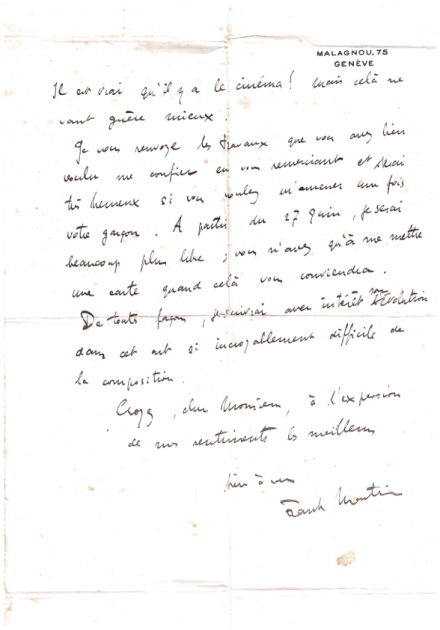 MALAGNOU, 75
GENÈVE
Il est vrai qu'il y a le cinéma! mais celà ne
vaut guère mieux.
Je vous renvoye les travaux que vous avez bien
voulu me confier en vous remerciant et serai
très heureux si vous voulez m'amener une fois
votre garçon. A partir du 27 Juin, je serai
beaucoup plus libre; vous n'avez qu'à me mettre
une carte quand celà vous conviendra.
De toute façon, je suivrai avec intérêt son évolution
dans cet art si incroyablement difficile de
la composition.
Croyez, cher Monsieur, à l'expression
de mes sentiments les meilleurs
bien à vous
Frank Martin